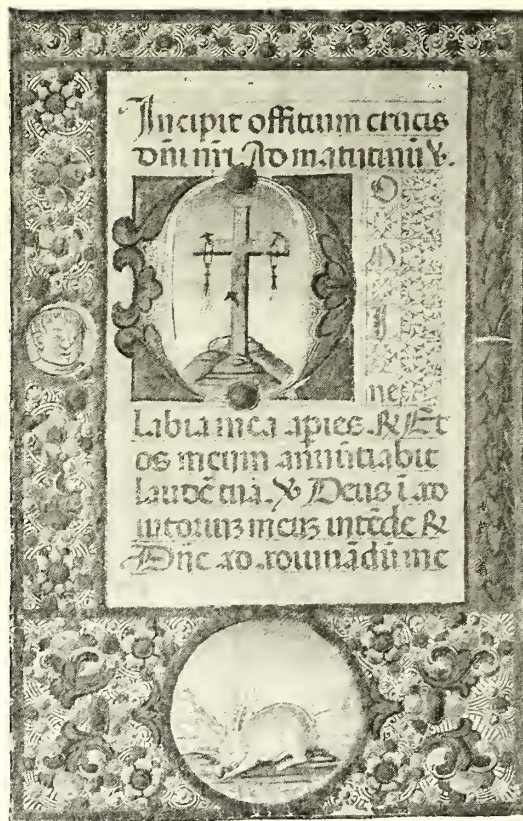 Incipit offitium crucis
dñi nr̃i. Ad matutinũ ℣.
D O M I
ne
labia mea apies. ℟ Et
os meum annũtiabit
laudẽ tuã. ℣ Deus ĩ ad
iutoriuꝫ meuꝫ intẽde ℟
Dñe ad adiuuãdũ me